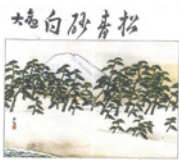 大觀 白砂青松